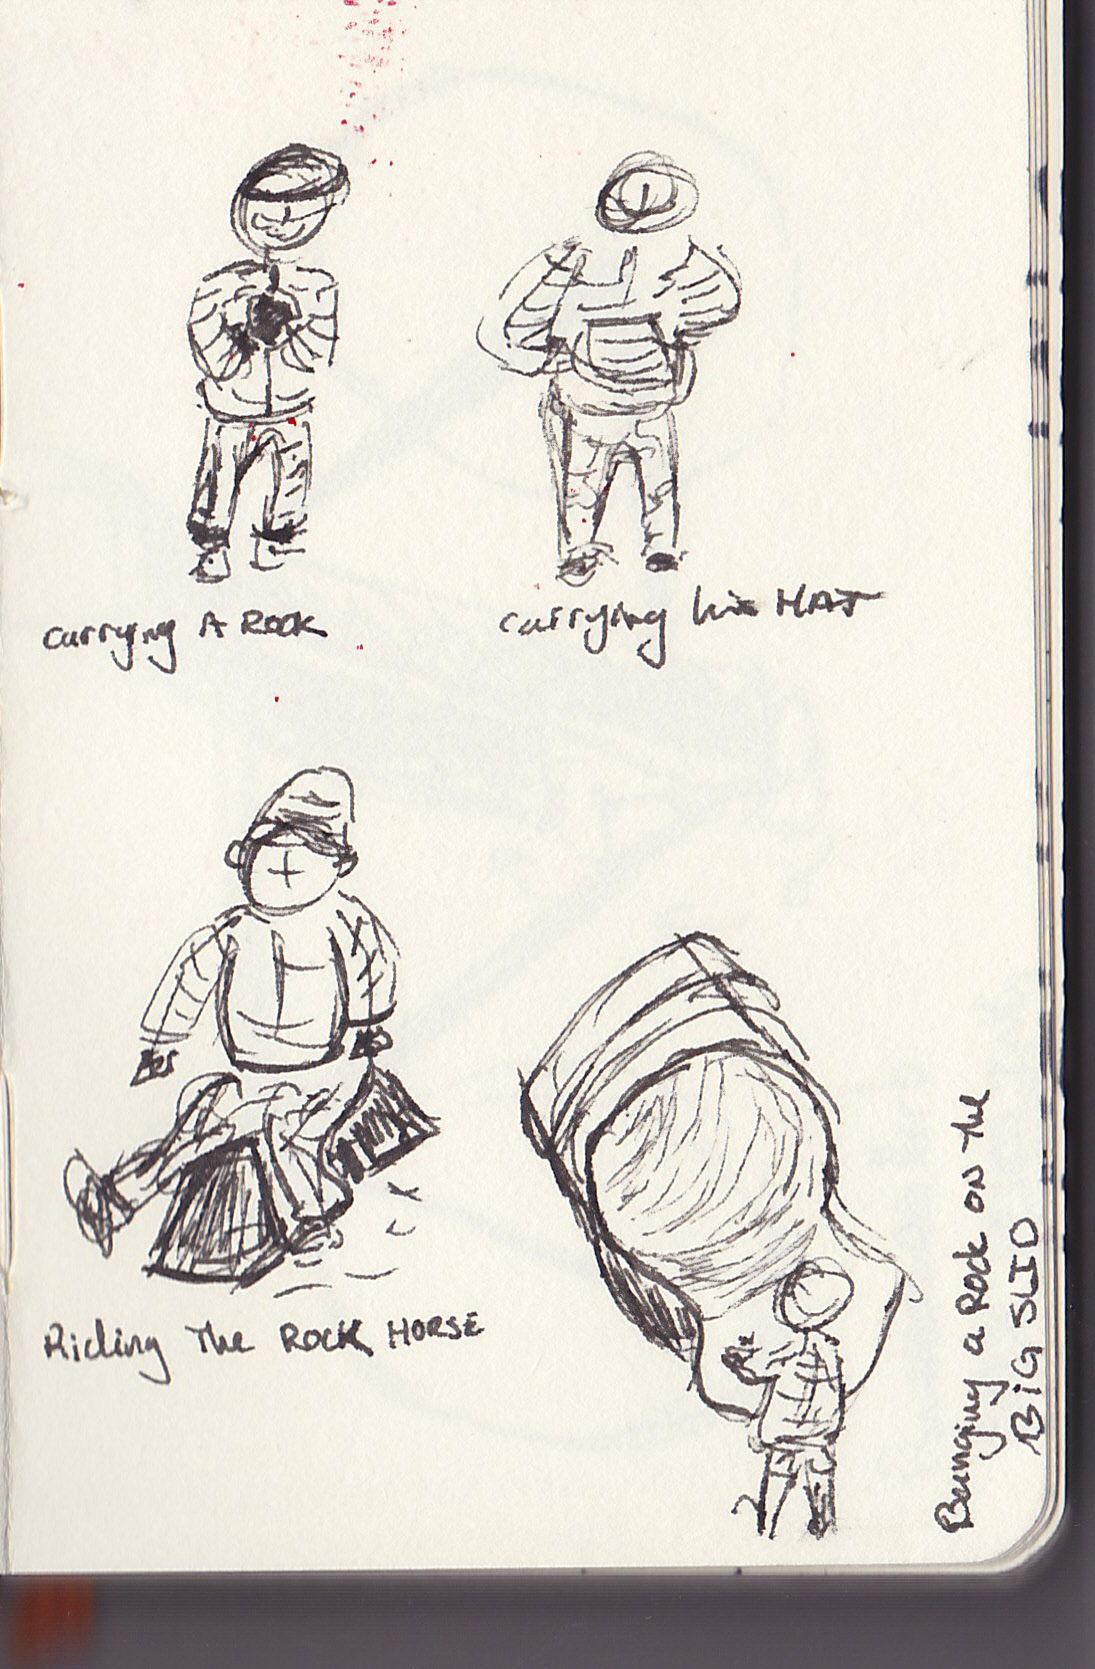 carrying A ROCK
carrying his HAT
Riding The ROCK HORSE
Banging a Rock on the
BiG SLID